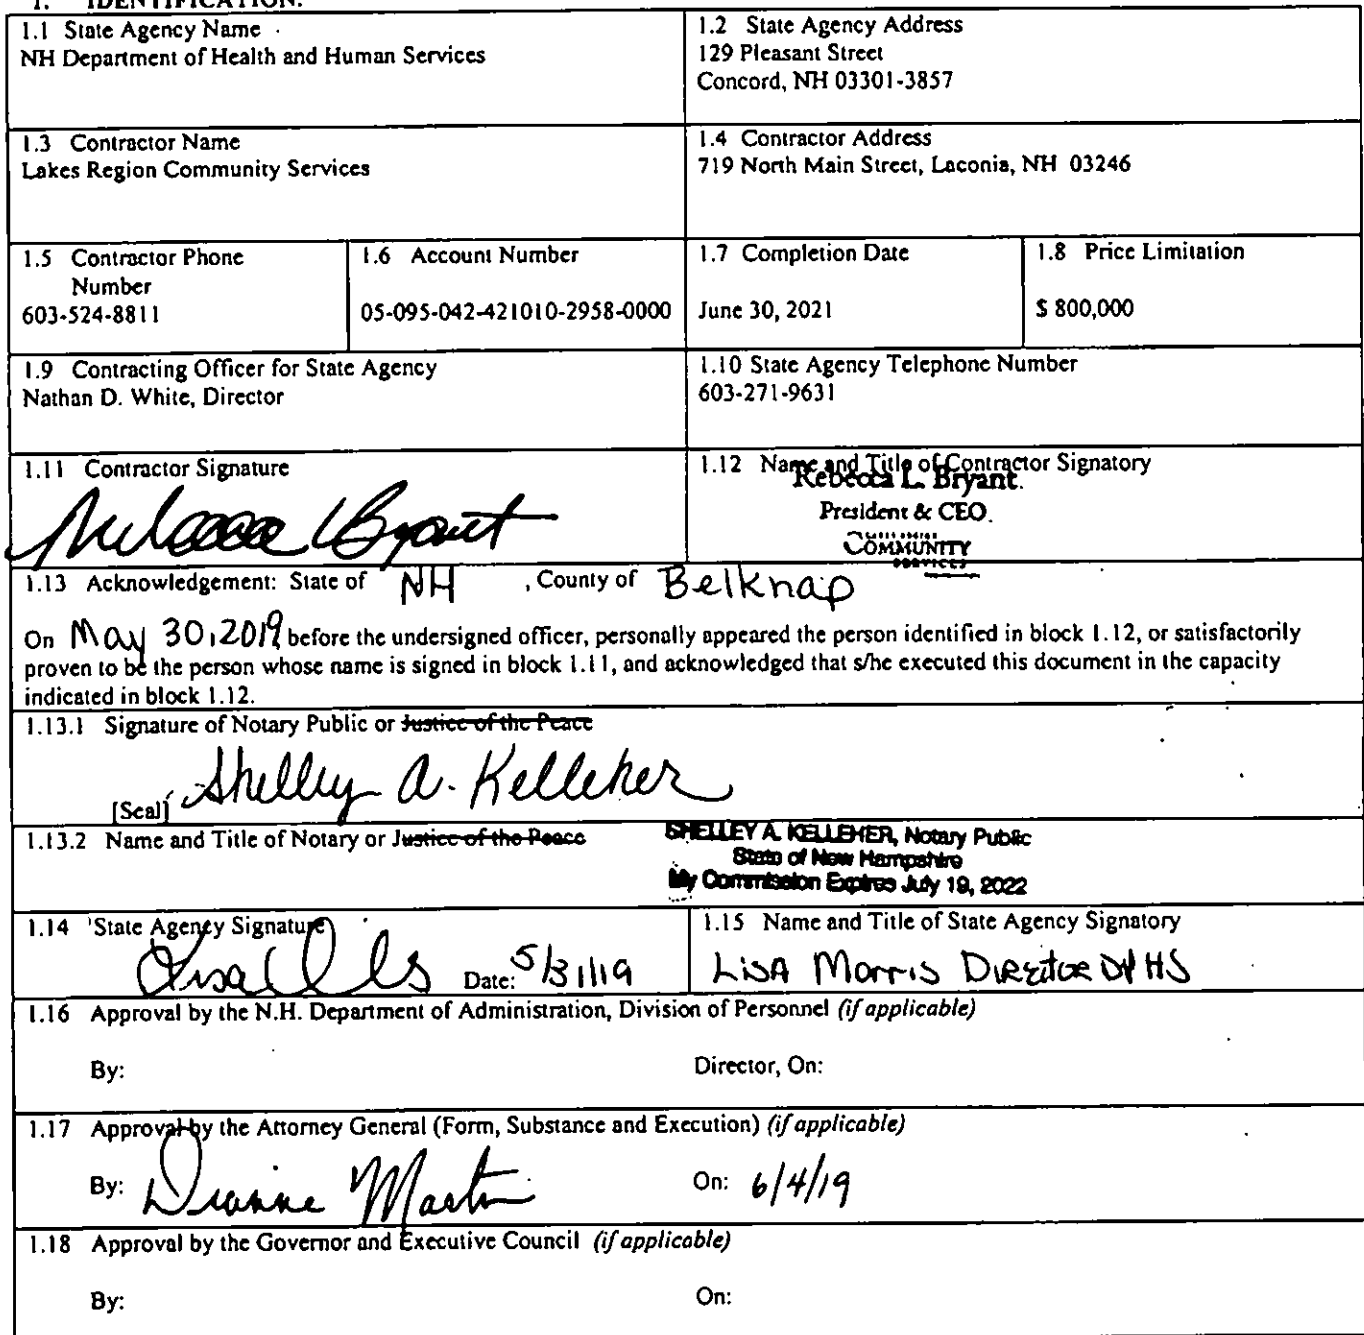 1. IDENTIFICATION.
1.1 State Agency Name
NH Department of Health and Human Services
1.2 State Agency Address
129 Pleasant Street
Concord, NH 03301-3857
1.3 Contractor Name
Lakes Region Community Services
1.4 Contractor Address
719 North Main Street, Laconia, NH 03246
1.5 Contractor Phone
Number
603-524-8811
1.6 Account Number
05-095-042-421010-2958-0000
1.7 Completion Date
June 30, 2021
1.8 Price Limitation
$ 800,000
1.9 Contracting Officer for State Agency
Nathan D. White, Director
1.10 State Agency Telephone Number
603-271-9631
1.11 Contractor Signature
Rebecca L Bryant
1.12 Name and Title of Contractor Signatory
Rebecca L. Bryant.
President & CEO.
COMMUNITY
SERVICES
1.13 Acknowledgement: State of NH , County of Belknap
On May 30, 2019 before the undersigned officer, personally appeared the person identified in block 1.12, or satisfactorily
proven to be the person whose name is signed in block 1.11, and acknowledged that s/he executed this document in the capacity
indicated in block 1.12.
1.13.1 Signature of Notary Public or Justice of the Peace
[Seal] Shelley A. Kelleher
1.13.2 Name and Title of Notary or Justice of the Peace
SHELLEY A. KELLEHER, Notary Public
State of New Hampshire
My Commission Expires July 19, 2022
1.14 State Agency Signature
Date: 5/31/19
1.15 Name and Title of State Agency Signatory
LISA Morris DIRECTOR DPHS
1.16 Approval by the N.H. Department of Administration, Division of Personnel (if applicable)
By: Director, On:
1.17 Approval by the Attorney General (Form, Substance and Execution) (if applicable)
By: Dianne Martin On: 6/4/19
1.18 Approval by the Governor and Executive Council (if applicable)
By: On: